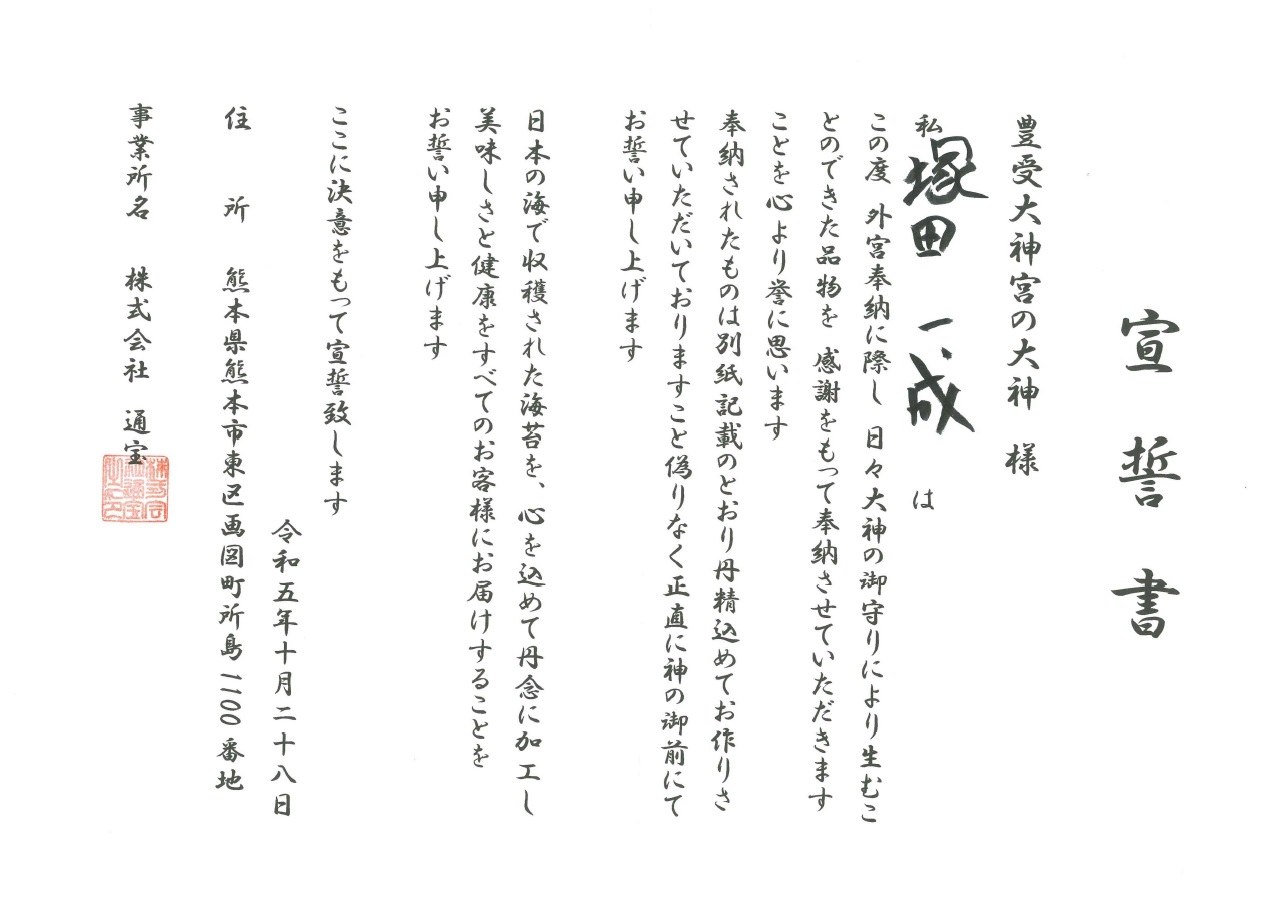 宣誓書
豊受大神宮の大神 様
私 塚田 一成 は
この度 外宮奉納に際し 日々大神の御守りにより生むこ
とのできた品物を 感謝をもって奉納させていただきます
ことを心より誉に思います
奉納されたものは別紙記載のとおり丹精込めてお作りさ
せていただいておりますこと偽りなく正直に神の御前にて
お誓い申し上げます
日本の海で収穫された海苔を、心を込めて丹念に加工し
美味しさと健康をすべてのお客様にお届けすることを
お誓い申し上げます
ここに決意をもって宣誓致します
令和五年十月二十八日
住 所 熊本県熊本市東区画図町所島1100番地
事業所名 株式会社 通宝